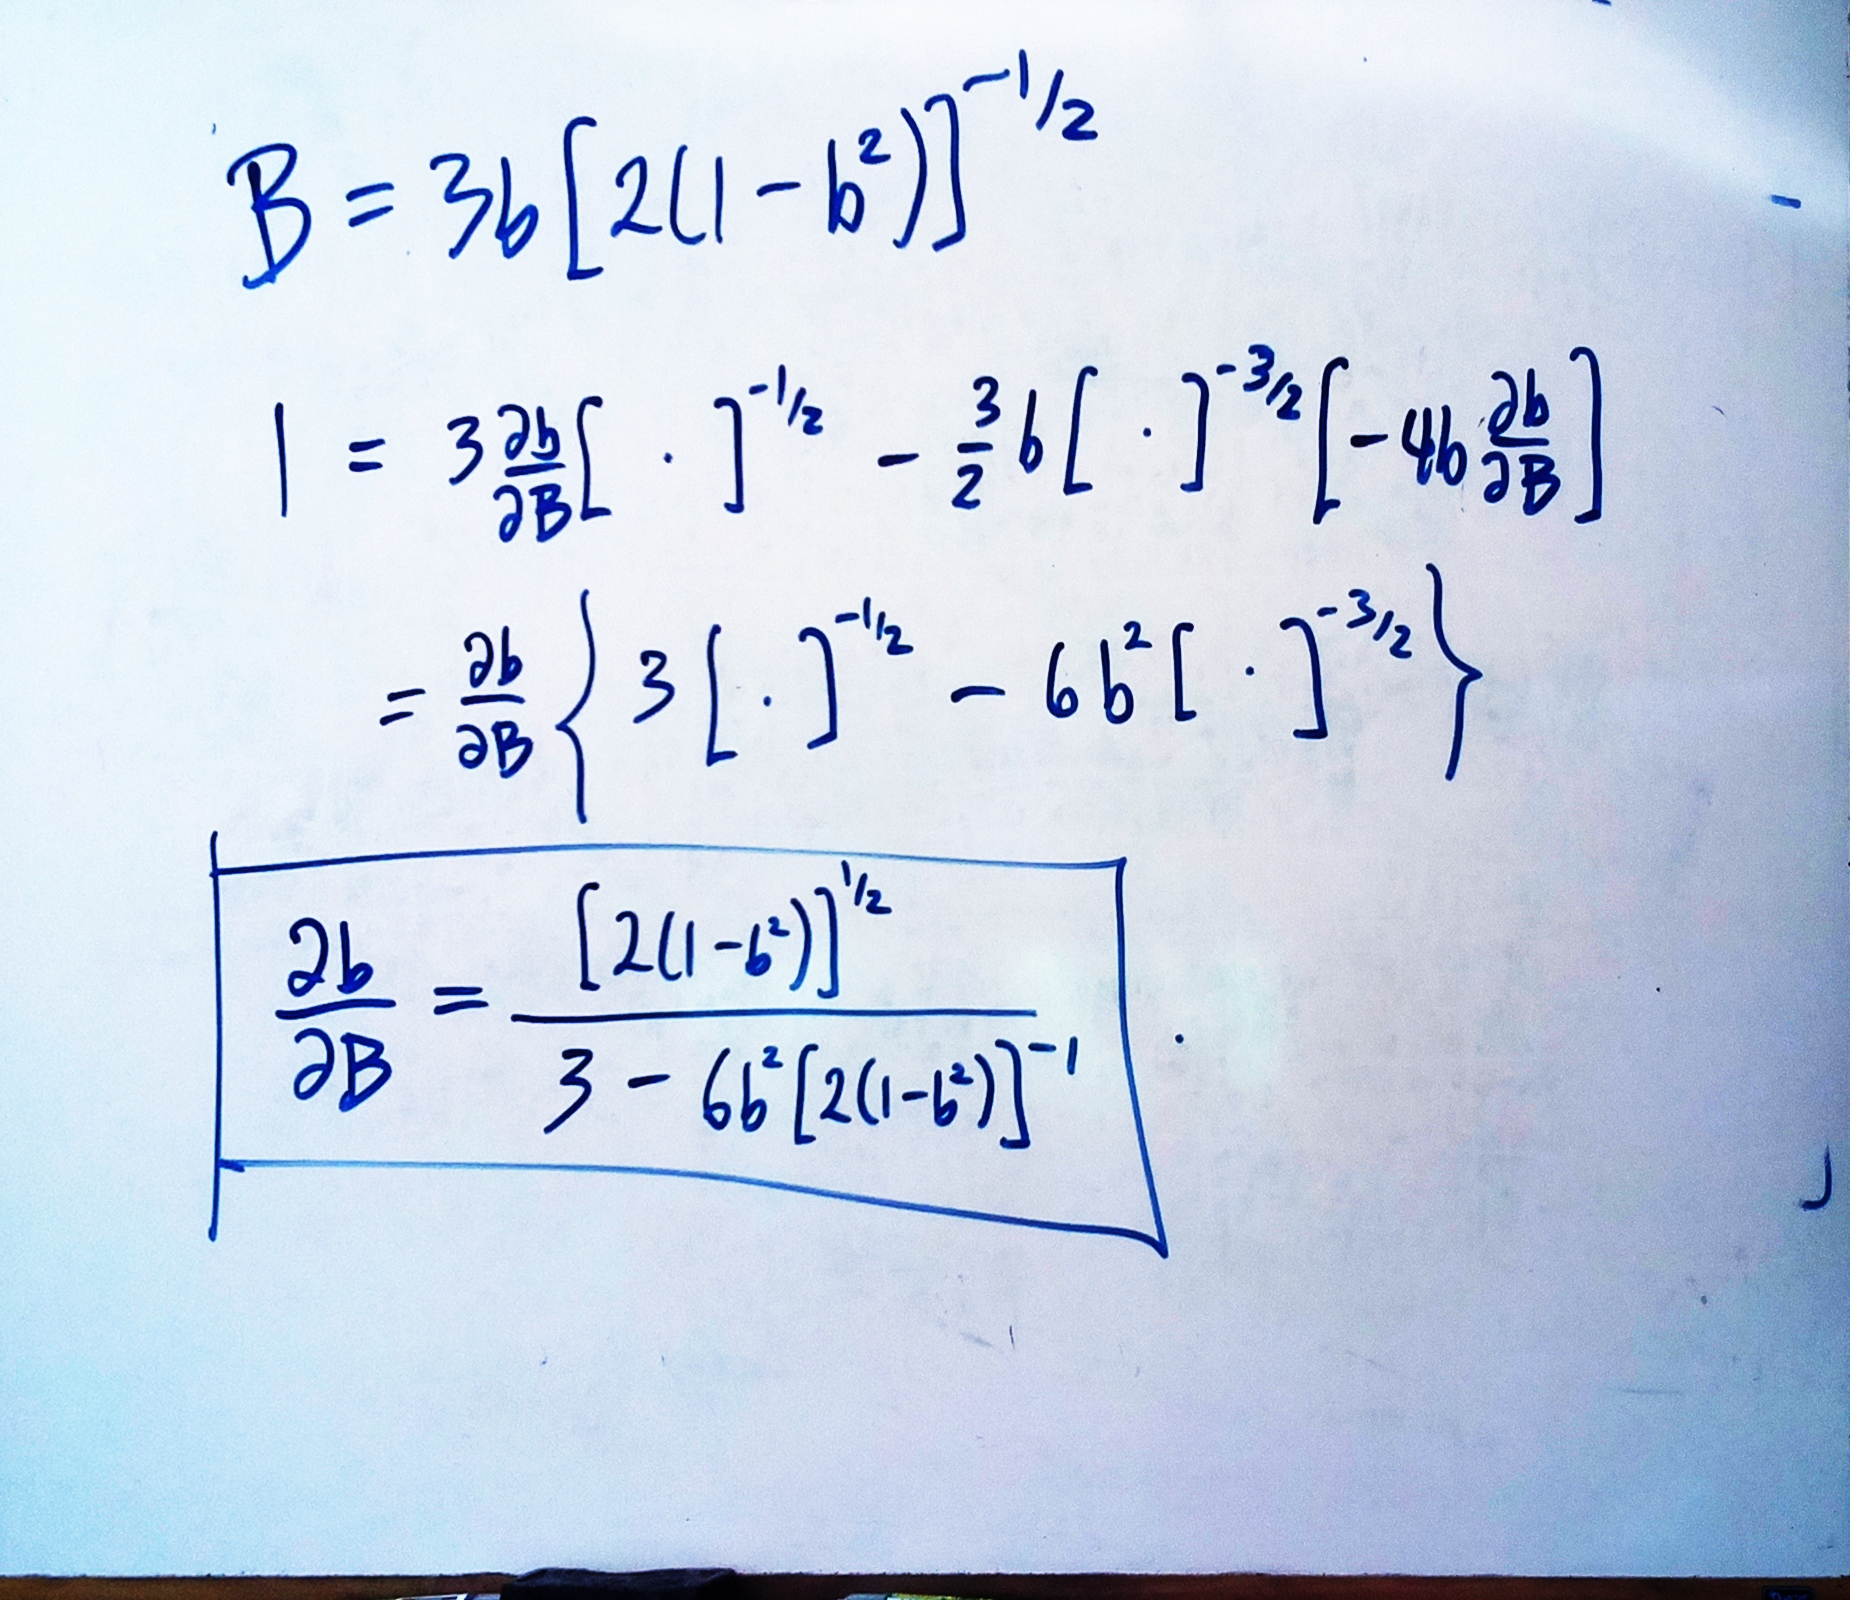 B = 3b[2(1-b²)]^{-1/2}
1 = 3 ∂b/∂B [ · ]^{-1/2} - 3/2 b[ · ]^{-3/2} [-4b ∂b/∂B]
= ∂b/∂B { 3[ · ]^{-1/2} - 6b²[ · ]^{-3/2} }
∂b/∂B = [2(1-b²)]^{1/2} / 3 - 6b²[2(1-b²)]^{-1} .